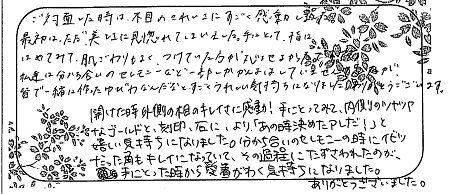 ご対面した時は、木目のきれいさにすごく感動しました。
最初は、ただ美しさに見惚れてしまいました。手にとって、指に
はめてみて、肌ざわりもよく、つけている
私達は分かち合いのセレモニーなど一部しか
皆で一緒に作ったゆびわなんだなとすごくうれしい気持ちになりました。ありがとうございます。
開けた時外側の木目のキレイさに感動！手にとってみて、内側の
なゴールドと、刻印、石に、より、「あの時決めたアレだ！」と
嬉しい気持ちになりました。分かち合いのセレモニーの時に
だった角もキレイになっていて、その過程にたずさわれたのが、
手にとった時から愛着がわく気持ちになりました。
ありがとうございました。